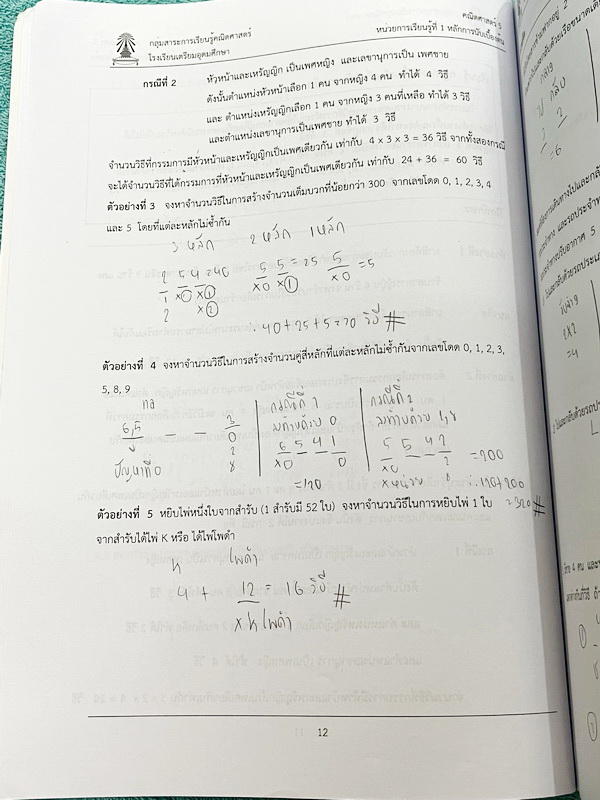 กลุ่มสาระการเรียนรู้คณิตศาสตร์
โรงเรียนเตรียมอุดมศึกษา
คณิตศาสตร์ 5
หน่วยการเรียนรู้ที่ 1 หลักการนับเบื้องต้น
กรณีที่ 2 หัวหน้าและเหรัญญิก เป็นเพศหญิง และเลขานุการเป็น เพศชาย
ดังนั้นตำแหน่งหัวหน้าเลือก 1 คน จากหญิง 4 คน ทำได้ 4 วิธี
และ ตำแหน่งเหรัญญิกเลือก 1 คน จากหญิง 3 คนที่เหลือ ทำได้ 3 วิธี
และตำแหน่งเลขานุการเป็นเพศชาย ทำได้ 3 วิธี
จำนวนวิธีที่กรรมการมีหัวหน้าและเหรัญญิกเป็นเพศเดียวกัน เท่ากับ 4 x 3 x 3 = 36 วิธี จากทั้งสองกรณี
จะได้จำนวนวิธีที่ได้กรรมการที่หัวหน้าและเหรัญญิกเป็นเพศเดียวกัน เท่ากับ 24 + 36 = 60 วิธี
ตัวอย่างที่ 3 จงหาจำนวนวิธีในการสร้างจำนวนเต็มบวกที่น้อยกว่า 300 จากเลขโดด 0, 1, 2, 3, 4
และ 5 โดยที่แต่ละหลักไม่ซ้ำกัน
3 หลัก 2 หลัก 1 หลัก
2 5 4 = 40 5 5 = 25 5 = 5
1 x0 x1 x0 x1 x0
2 x2
∴ 40+25+5=70 วิธี #
ตัวอย่างที่ 4 จงหาจำนวนวิธีในการสร้างจำนวนคู่สี่หลักที่แต่ละหลักไม่ซ้ำกันจากเลขโดด 0, 1, 2, 3,
5, 8, 9
กรณีที่ 1 กรณีที่ 2
ลงท้ายด้วย 0
6,5 – – 3
0
2
8
ปัญหาที่ 0
5 4 1
x0 0
=120
5 5 4 2 = 200
x0
∴ 120+200
=320 #
ตัวอย่างที่ 5 หยิบไพ่หนึ่งใบจากสำรับ (1 สำรับมี 52 ใบ) จงหาจำนวนวิธีในการหยิบไพ่ 1 ใบ
จากสำรับได้ไพ่ K หรือ ได้ไพ่โพดำ
K โพดำ
4 + 12 = 16 วิธี #
x K โพดำ
12